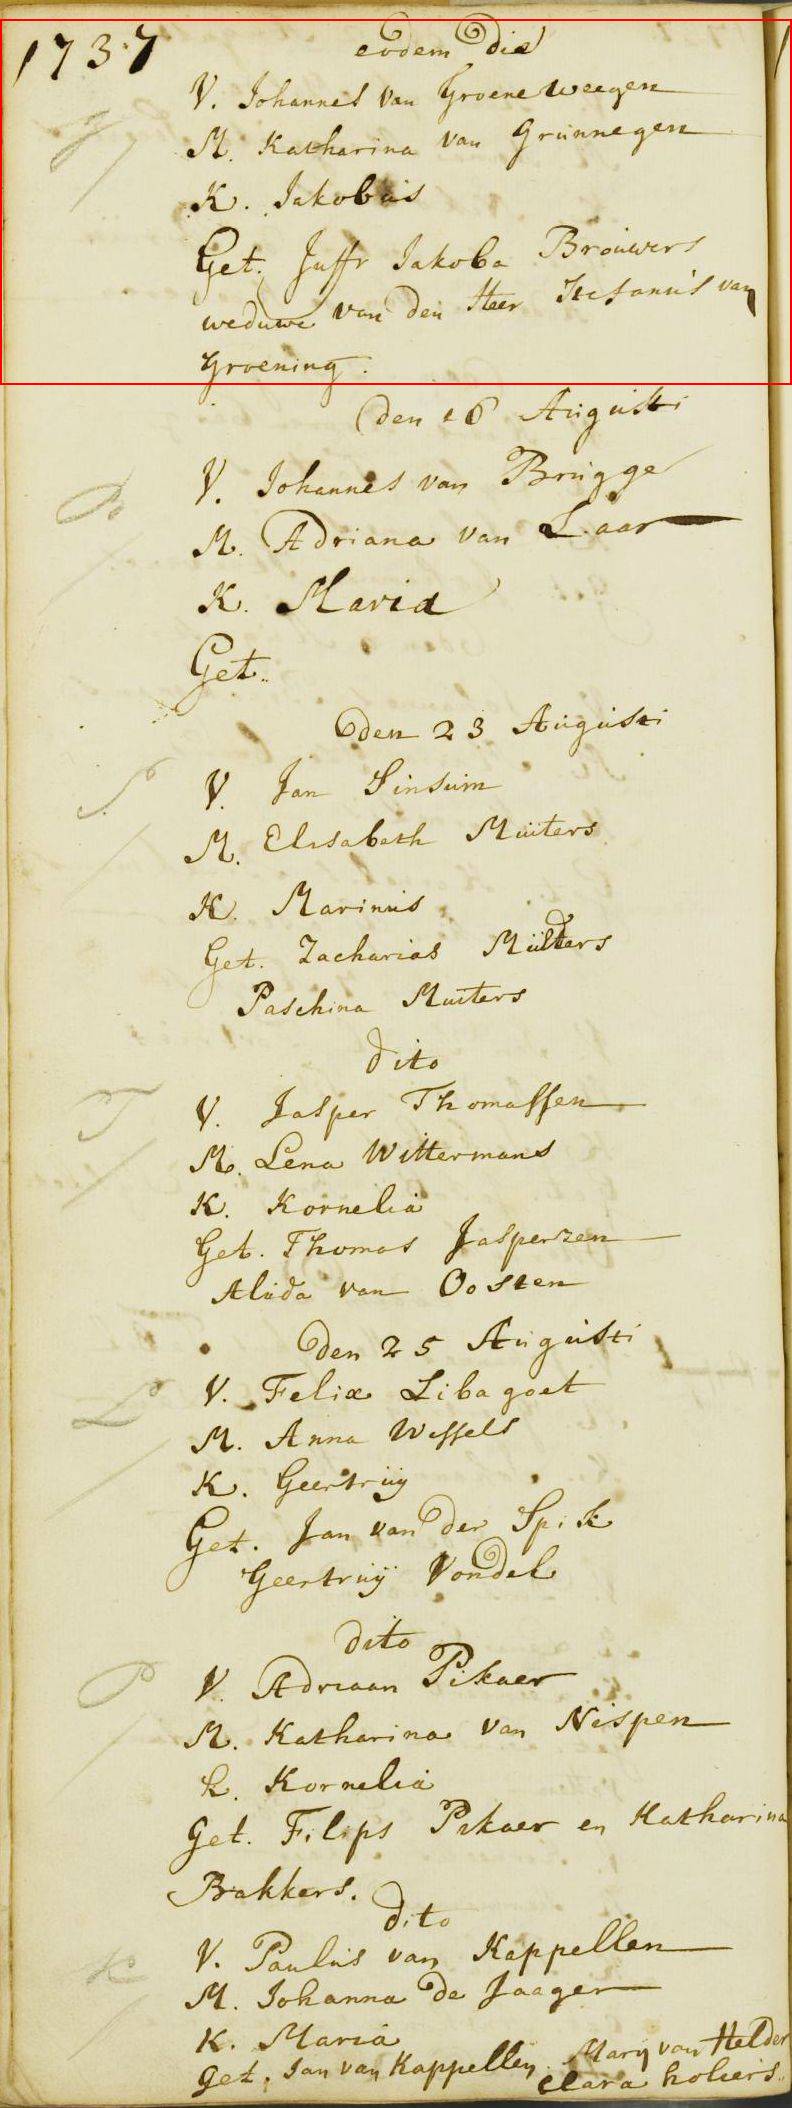 1737 eodem die
V. Johannes van Groeneweegen
g M. Katharina van Grunnegen
K. Jakobus
Get. Juffr Jakoba Brouwers
weduwe van den Heer Stefanus van
Groening.
den 16 Augusti
V. Johannes van Brugge
B M. Adriana van Laar
K. Maria
Get.
den 23 Augusti
S V. Jan Sinsum
M. Elisabeth Muiters
K. Marinus
Get. Zacharias Mulders
Paschina Muiters
dito
T V. Jasper Thomassen
M. Lena Wittermans
K. Kornelia
Get. Thomas Jasperzen
Alida van Oosten
den 25 Augusti
L V. Felix Libagoet
M. Anna Wessels
K. Geertruy
Get. Jan van der Spik
Geertruy Vondel
dito
P V. Adriaan Pikaer
M. Katharina van Nispen
k. Kornelia
Get. Filips Pikaer en Katharina
Bakkers.
dito
K V. Paulus van Kappellen
M. Johanna de Jaager
K. Maria
Get. Jan van Kappellen Mary van Helder
Clara